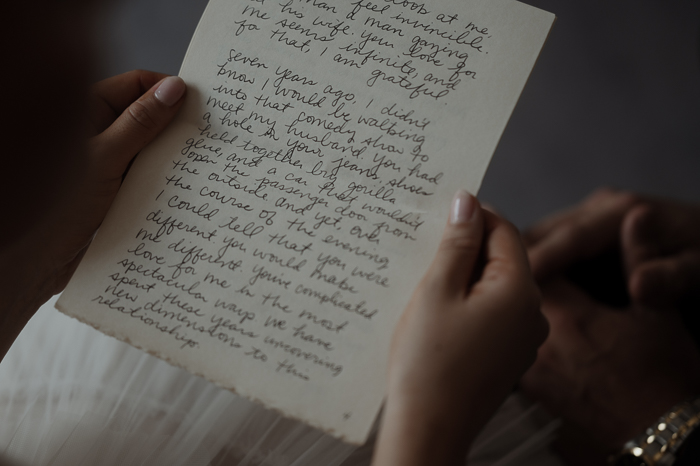 look at me,
man a man gazing
feel invincible.
his wife. Your love for
me seems infinite, and
for that, I am grateful.
Seven years ago, I didn't
know I would be walking
into that comedy show to
meet my husband. You had
a hole in your jeans, shoes
held together by gorilla
glue, and a car that wouldn't
open the passenger door from
the outside and yet, over
the course of the evening
I could tell that you were
different. You would make
me different. You've complicated
love for me in the most
spectacular ways. We have
spent these years uncovering
new dimensions to this
relationship.